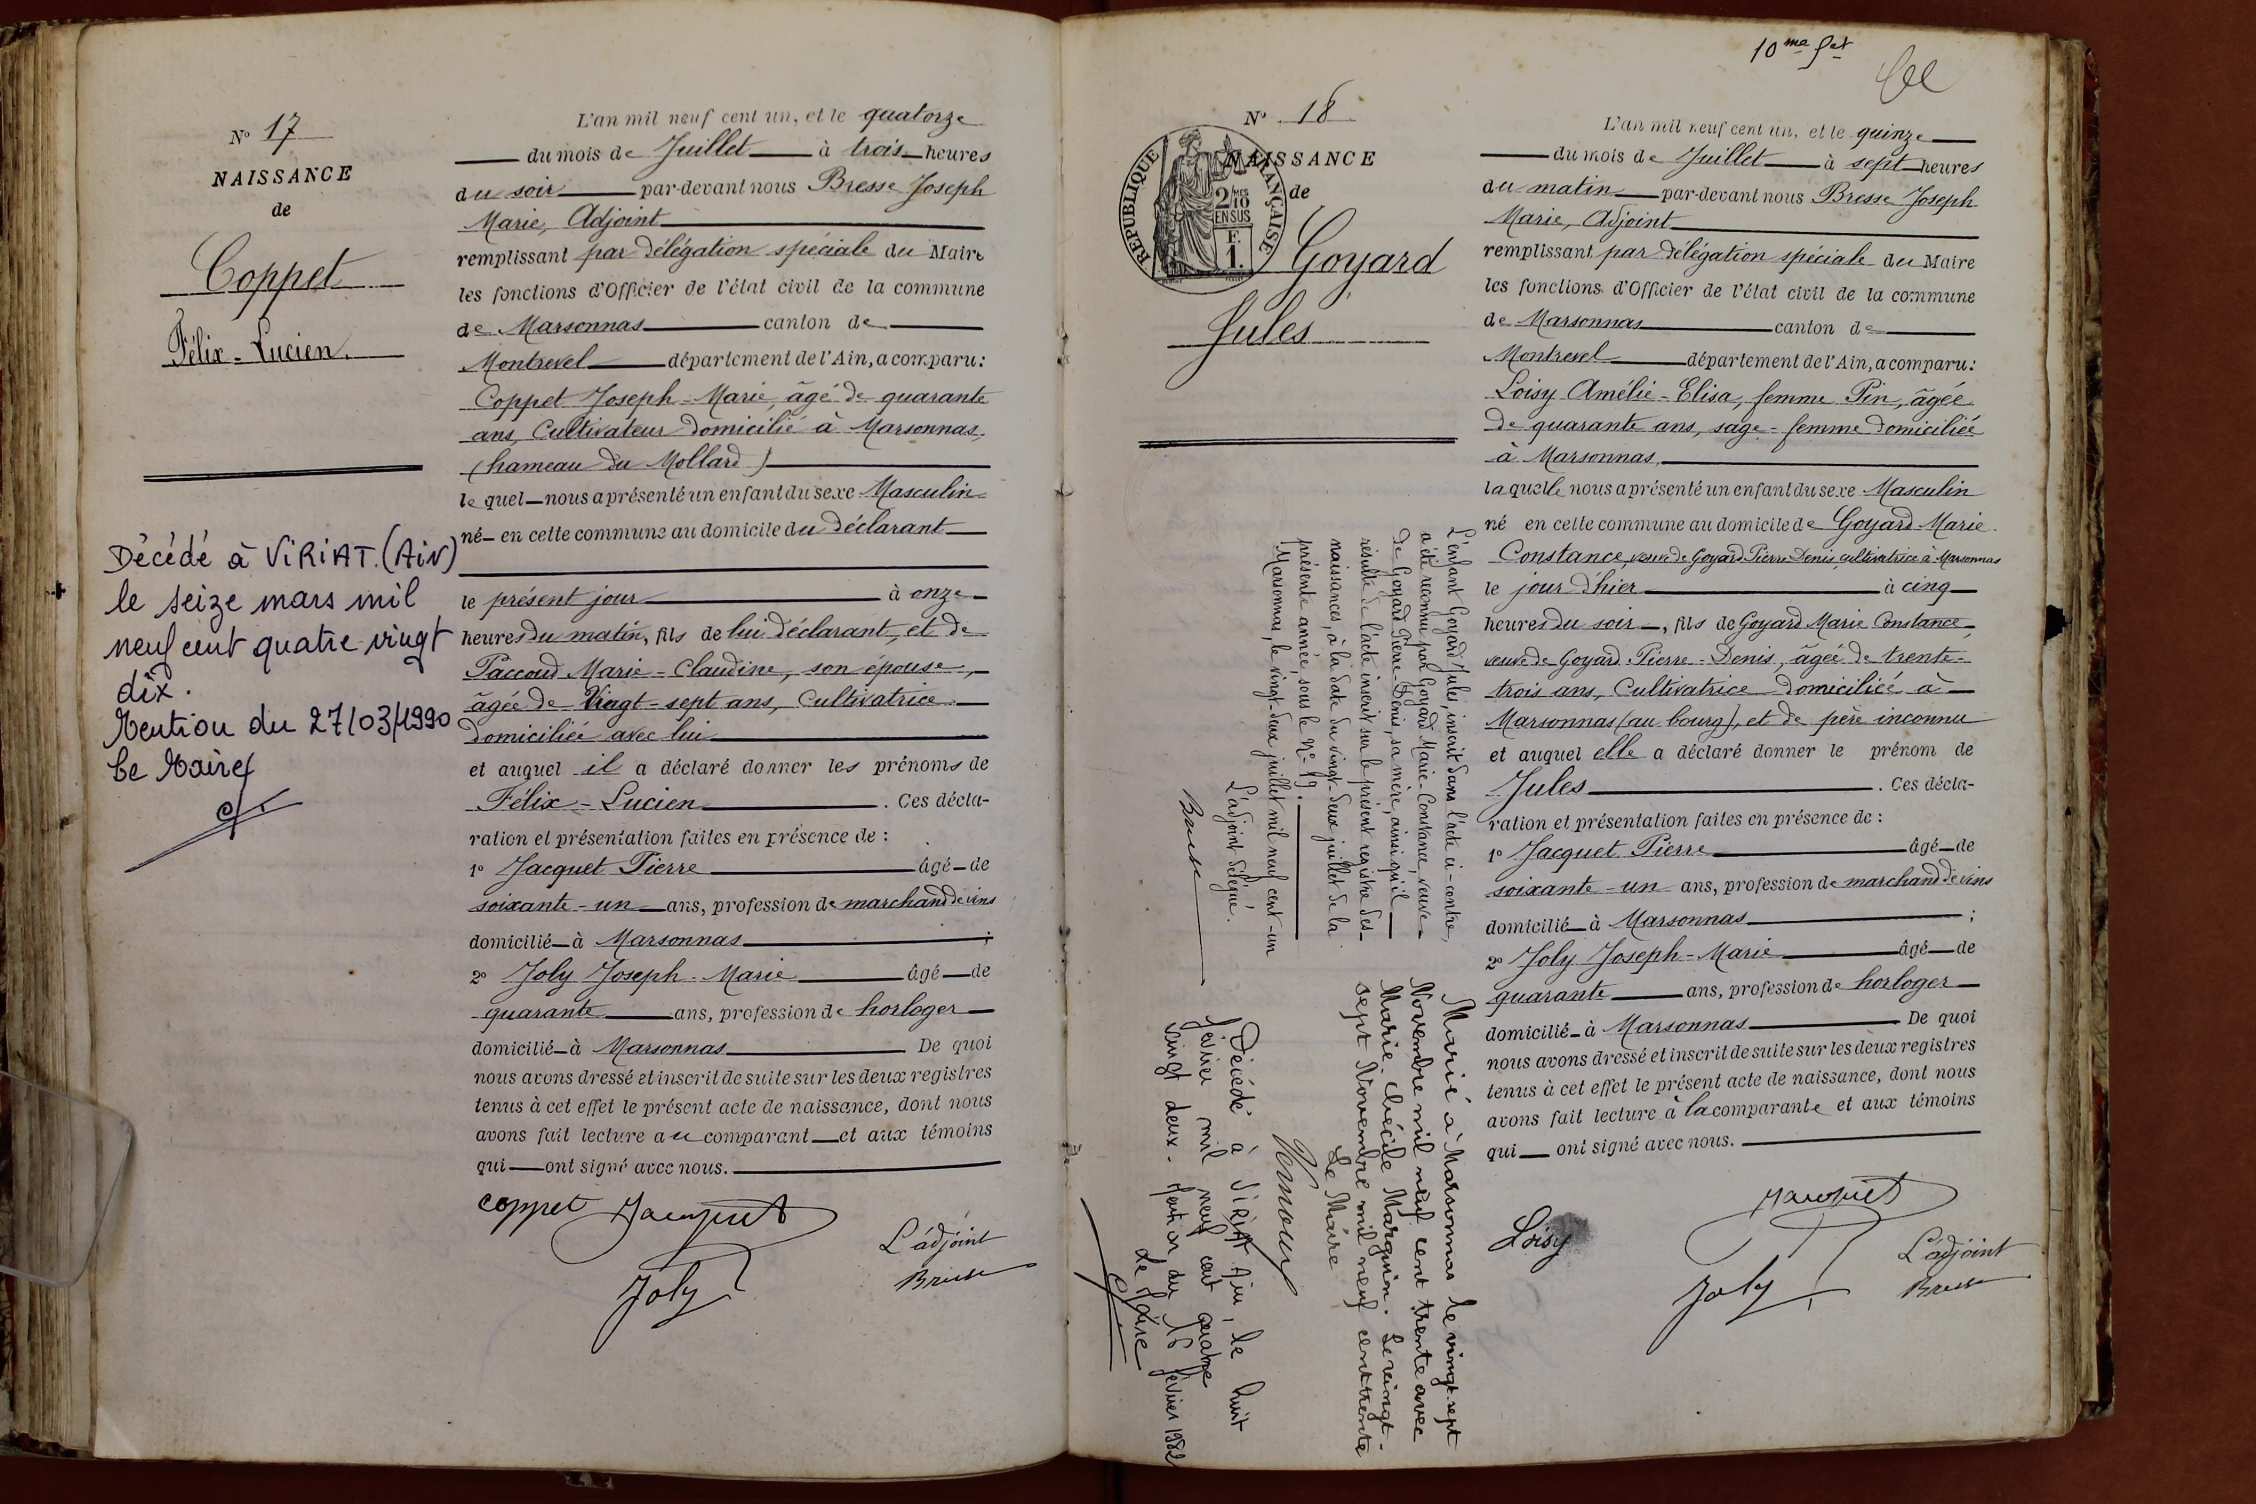 N° 17
NAISSANCE
de
Coppet
Félix-Lucien.
Décédé à VIRIAT. (AiN)
le seize mars mil
neuf cent quatre vingt
dix.
Mention du 27/03/1990
Le Maire
L'an mil neuf cent un, et le quatorze
du mois de Juillet à trois heures
du soir par-devant nous Bresse Joseph
Marie, Adjoint
remplissant par délégation spéciale du Maire
les fonctions d'Officier de l'état civil de la commune
de Marsonnas canton de
Montrevel département de l'Ain, a comparu:
Coppet Joseph-Marie, âgé de quarante
ans, Cultivateur domicilié à Marsonnas,
(hameau du Mollard)
lequel nous a présenté un enfant du sexe Masculin
né en cette commune au domicile du déclarant
le présent jour à onze
heures du matin, fils de lui déclarant, et de
Paccoud Marie-Claudine, son épouse,
âgée de Vingt-sept ans, Cultivatrice
domiciliée avec lui
et auquel il a déclaré donner les prénoms de
Félix-Lucien. Ces décla-
ration et présentation faites en présence de :
1° Jacquet Pierre âgé de
soixante-un ans, profession de marchand de vins
domicilié à Marsonnas ;
2° Joly Joseph-Marie âgé de
quarante ans, profession de horloger
domicilié à Marsonnas De quoi
nous avons dressé et inscrit de suite sur les deux registres
tenus à cet effet le présent acte de naissance, dont nous
avons fait lecture au comparant et aux témoins
qui ont signé avec nous.
coppet Jacquet
L'adjoint
Joly
Bresse
10me fet
N° 18
NAISSANCE
de
REPUBLIQUE FRANÇAISE
2/10mes
EN SUS
F.
1.
Goyard
Jules
L'enfant Goyard Jules, inscrit dans l'acte ci-contre,
a été reconnu par Goyard Marie-Constance, veuve
de Goyard Pierre-Denis, sa mère, ainsi qu'il
résulte de l'acte inscrit sur le présent registre des
naissances, à la date du vingt-deux juillet de la
présente année, sous le N° 19.
Marsonnas, le vingt-deux juillet mil neuf cent-un
L'adjoint délégué.
Bresse
Marié à Marsonnas le vingt sept
Novembre mil neuf cent trente avec
Marie Cécile Marguin. Le vingt-
sept Novembre mil neuf cent trente
Le Maire
Décédé à VIRIAT Ain, le huit
février mil neuf cent quatre
vingt deux. Mention du 16 février 1982
Le Maire
L'an mil neuf cent un, et le quinze
du mois de Juillet à sept heures
du matin par-devant nous Bresse Joseph
Marie, Adjoint
remplissant par délégation spéciale du Maire
les fonctions d'Officier de l'état civil de la commune
de Marsonnas canton de
Montrevel département de l'Ain, a comparu:
Loisy Amélie-Elisa, femme Pin, âgée
de quarante ans, sage-femme domiciliée
à Marsonnas,
laquelle nous a présenté un enfant du sexe Masculin
né en cette commune au domicile de Goyard Marie
Constance, veuve de Goyard Pierre-Denis, cultivatrice à Marsonnas
le jour d'hier à cinq
heures du soir, fils de Goyard Marie Constance,
veuve de Goyard Pierre-Denis, âgée de trente-
trois ans, Cultivatrice domiciliée à
Marsonnas (au bourg), et de père inconnu
et auquel elle a déclaré donner le prénom de
Jules. Ces décla-
ration et présentation faites en présence de :
1° Jacquet Pierre âgé de
soixante-un ans, profession de marchand de vins
domicilié à Marsonnas ;
2° Joly Joseph-Marie âgé de
quarante ans, profession de horloger
domicilié à Marsonnas De quoi
nous avons dressé et inscrit de suite sur les deux registres
tenus à cet effet le présent acte de naissance, dont nous
avons fait lecture à la comparante et aux témoins
qui ont signé avec nous.
Jacquet
Loisy
L'adjoint
Joly
Bresse